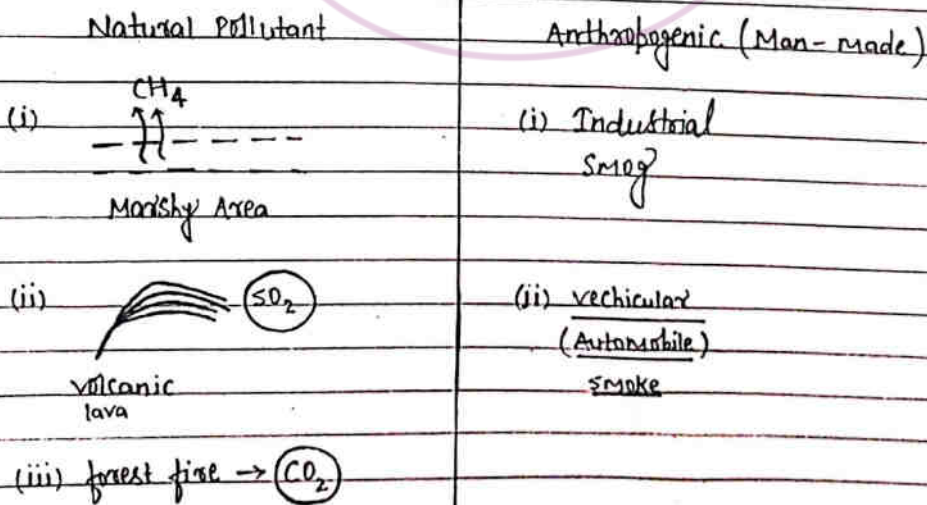 Natural Pollutant
(i) CH4
Marshy Area
(ii) SO2
volcanic
lava
(iii) forest fire → CO2
Anthropogenic (Man-made)
(i) Industrial
Smog
(ii) vechicular
(Automobile)
smoke